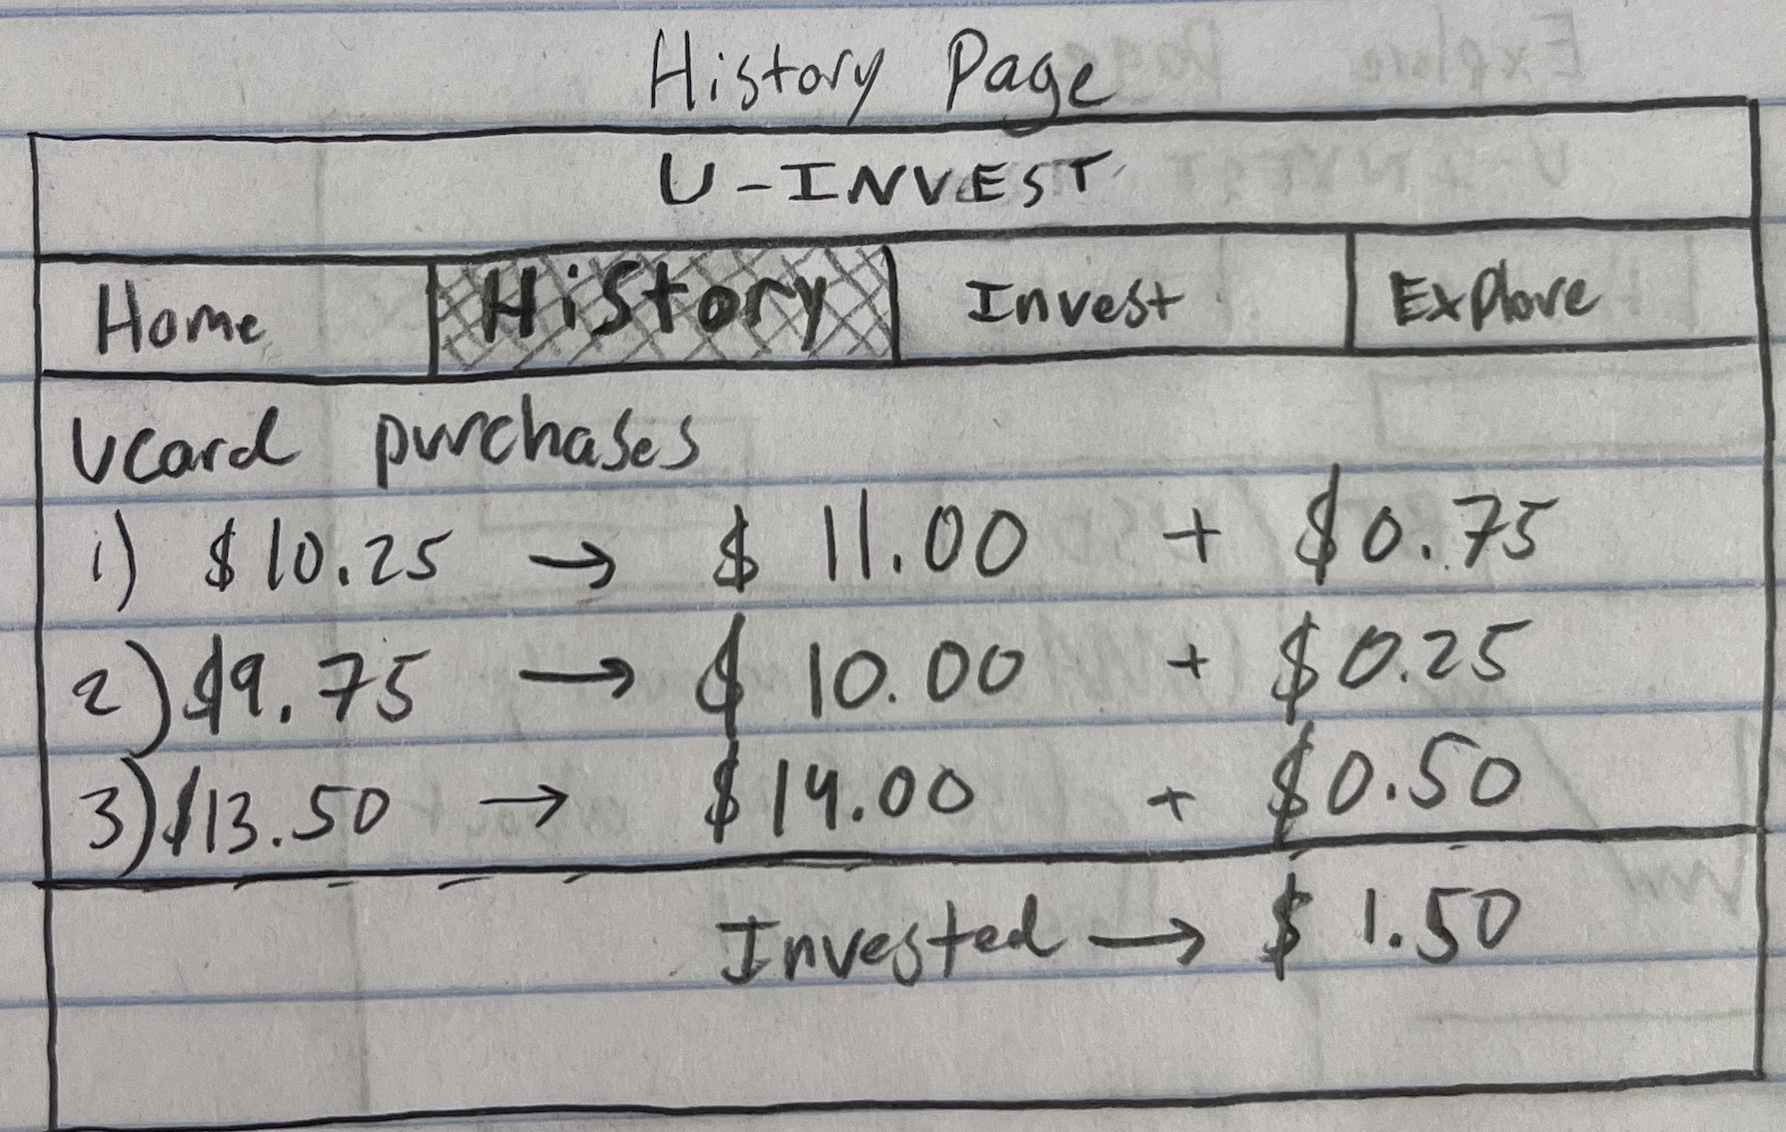 History Page
U-INVEST
Home History Invest Explore
Ucard purchases
1) $10.25 → $ 11.00 + $0.75
2) $9.75 → $ 10.00 + $0.25
3) $13.50 → $ 14.00 + $0.50
Invested → $ 1.50